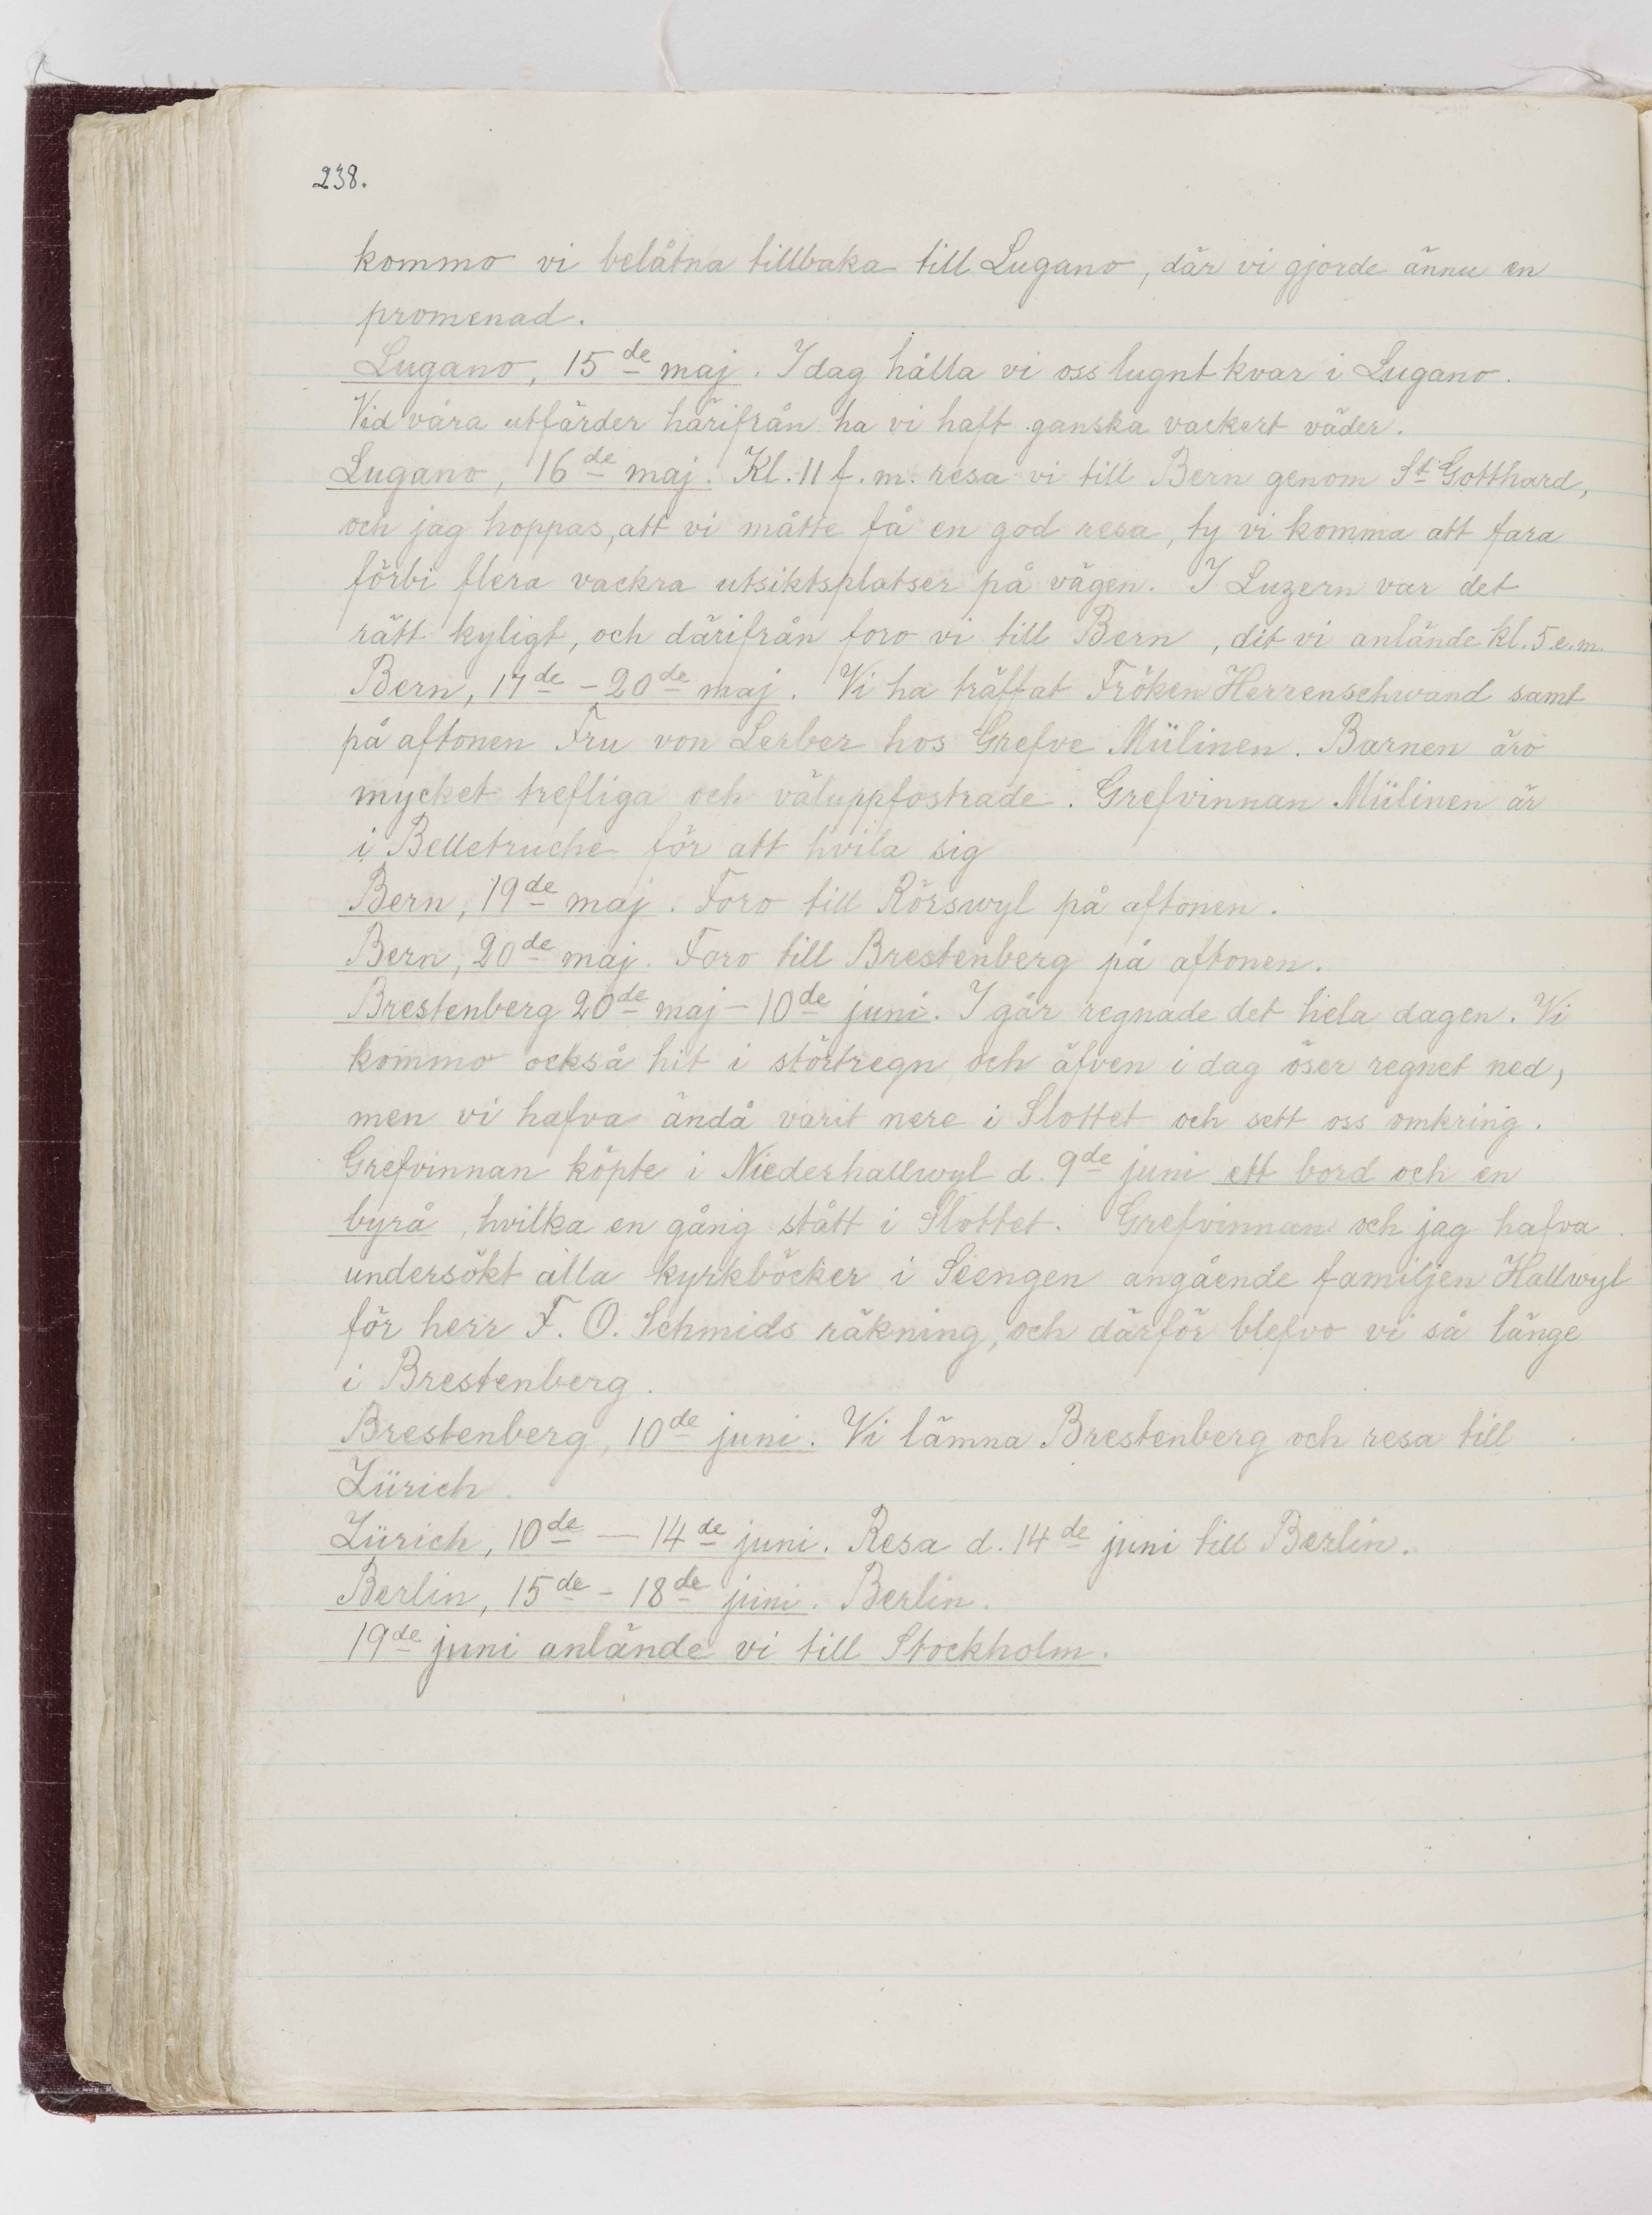 238.
kommo vi belåtna tillbaka till Lugano, där vi gjorde ännu en
promenad.
Lugano, 15de maj. I dag hålla vi oss lugnt kvar i Lugano.
Vid våra utfärder härifrån ha vi haft ganska vackert väder.
Lugano, 16de maj. Kl. 11 f. m. resa vi till Bern genom St Gotthard,
och jag hoppas, att vi måtte få en god resa, ty vi komma att fara
förbi flera vackra utsiktsplatser på vägen. I Luzern var det
rätt kyligt, och därifrån foro vi till Bern, dit vi anlände kl. 5 e. m.
Bern, 17de - 20de maj. Vi ha träffat Fröken Herrenschwand samt
på aftonen Fru von Lerber hos Grefve Mülinen. Barnen äro
mycket trefliga och väluppfostrade. Grefvinnan Mülinen är
i Belletruche för att hvila sig
Bern, 19de maj. Foro till Rörswyl på aftonen.
Bern, 20de maj. Foro till Brestenberg på aftonen.
Brestenberg 20de maj - 10de juni. I går regnade det hela dagen. Vi
kommo också hit i störtregn och äfven i dag öser regnet ned,
men vi hafva ändå varit nere i Slottet och sett oss omkring.
Grefvinnan köpte i Niederhallwyl d. 9de juni ett bord och en
byrå, hvilka en gång stått i Slottet. Grefvinnan och jag hafva
undersökt alla kyrkböcker i Seengen angående familjen Hallwyl
för herr F. O. Schmids räkning, och därför blefvo vi så länge
i Brestenberg.
Brestenberg, 10de juni. Vi lämna Brestenberg och resa till
Zürich.
Zürich, 10de — 14de juni. Resa d. 14de juni till Berlin.
Berlin, 15de - 18de juni. Berlin.
19de juni anlände vi till Stockholm.